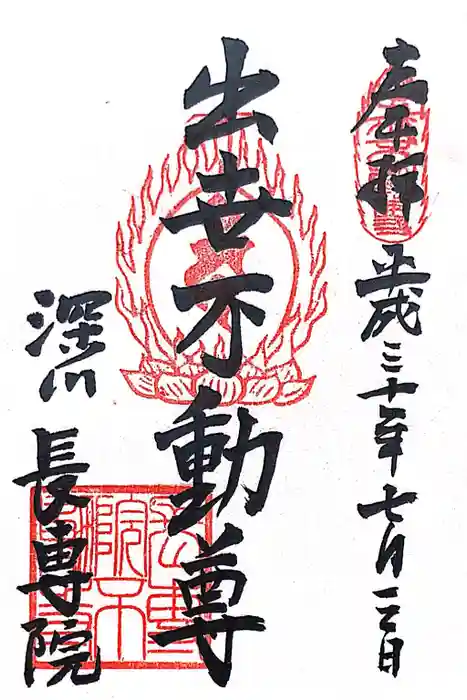 奉拝
平成三十年七月二日
出世不動尊
深川
長専院